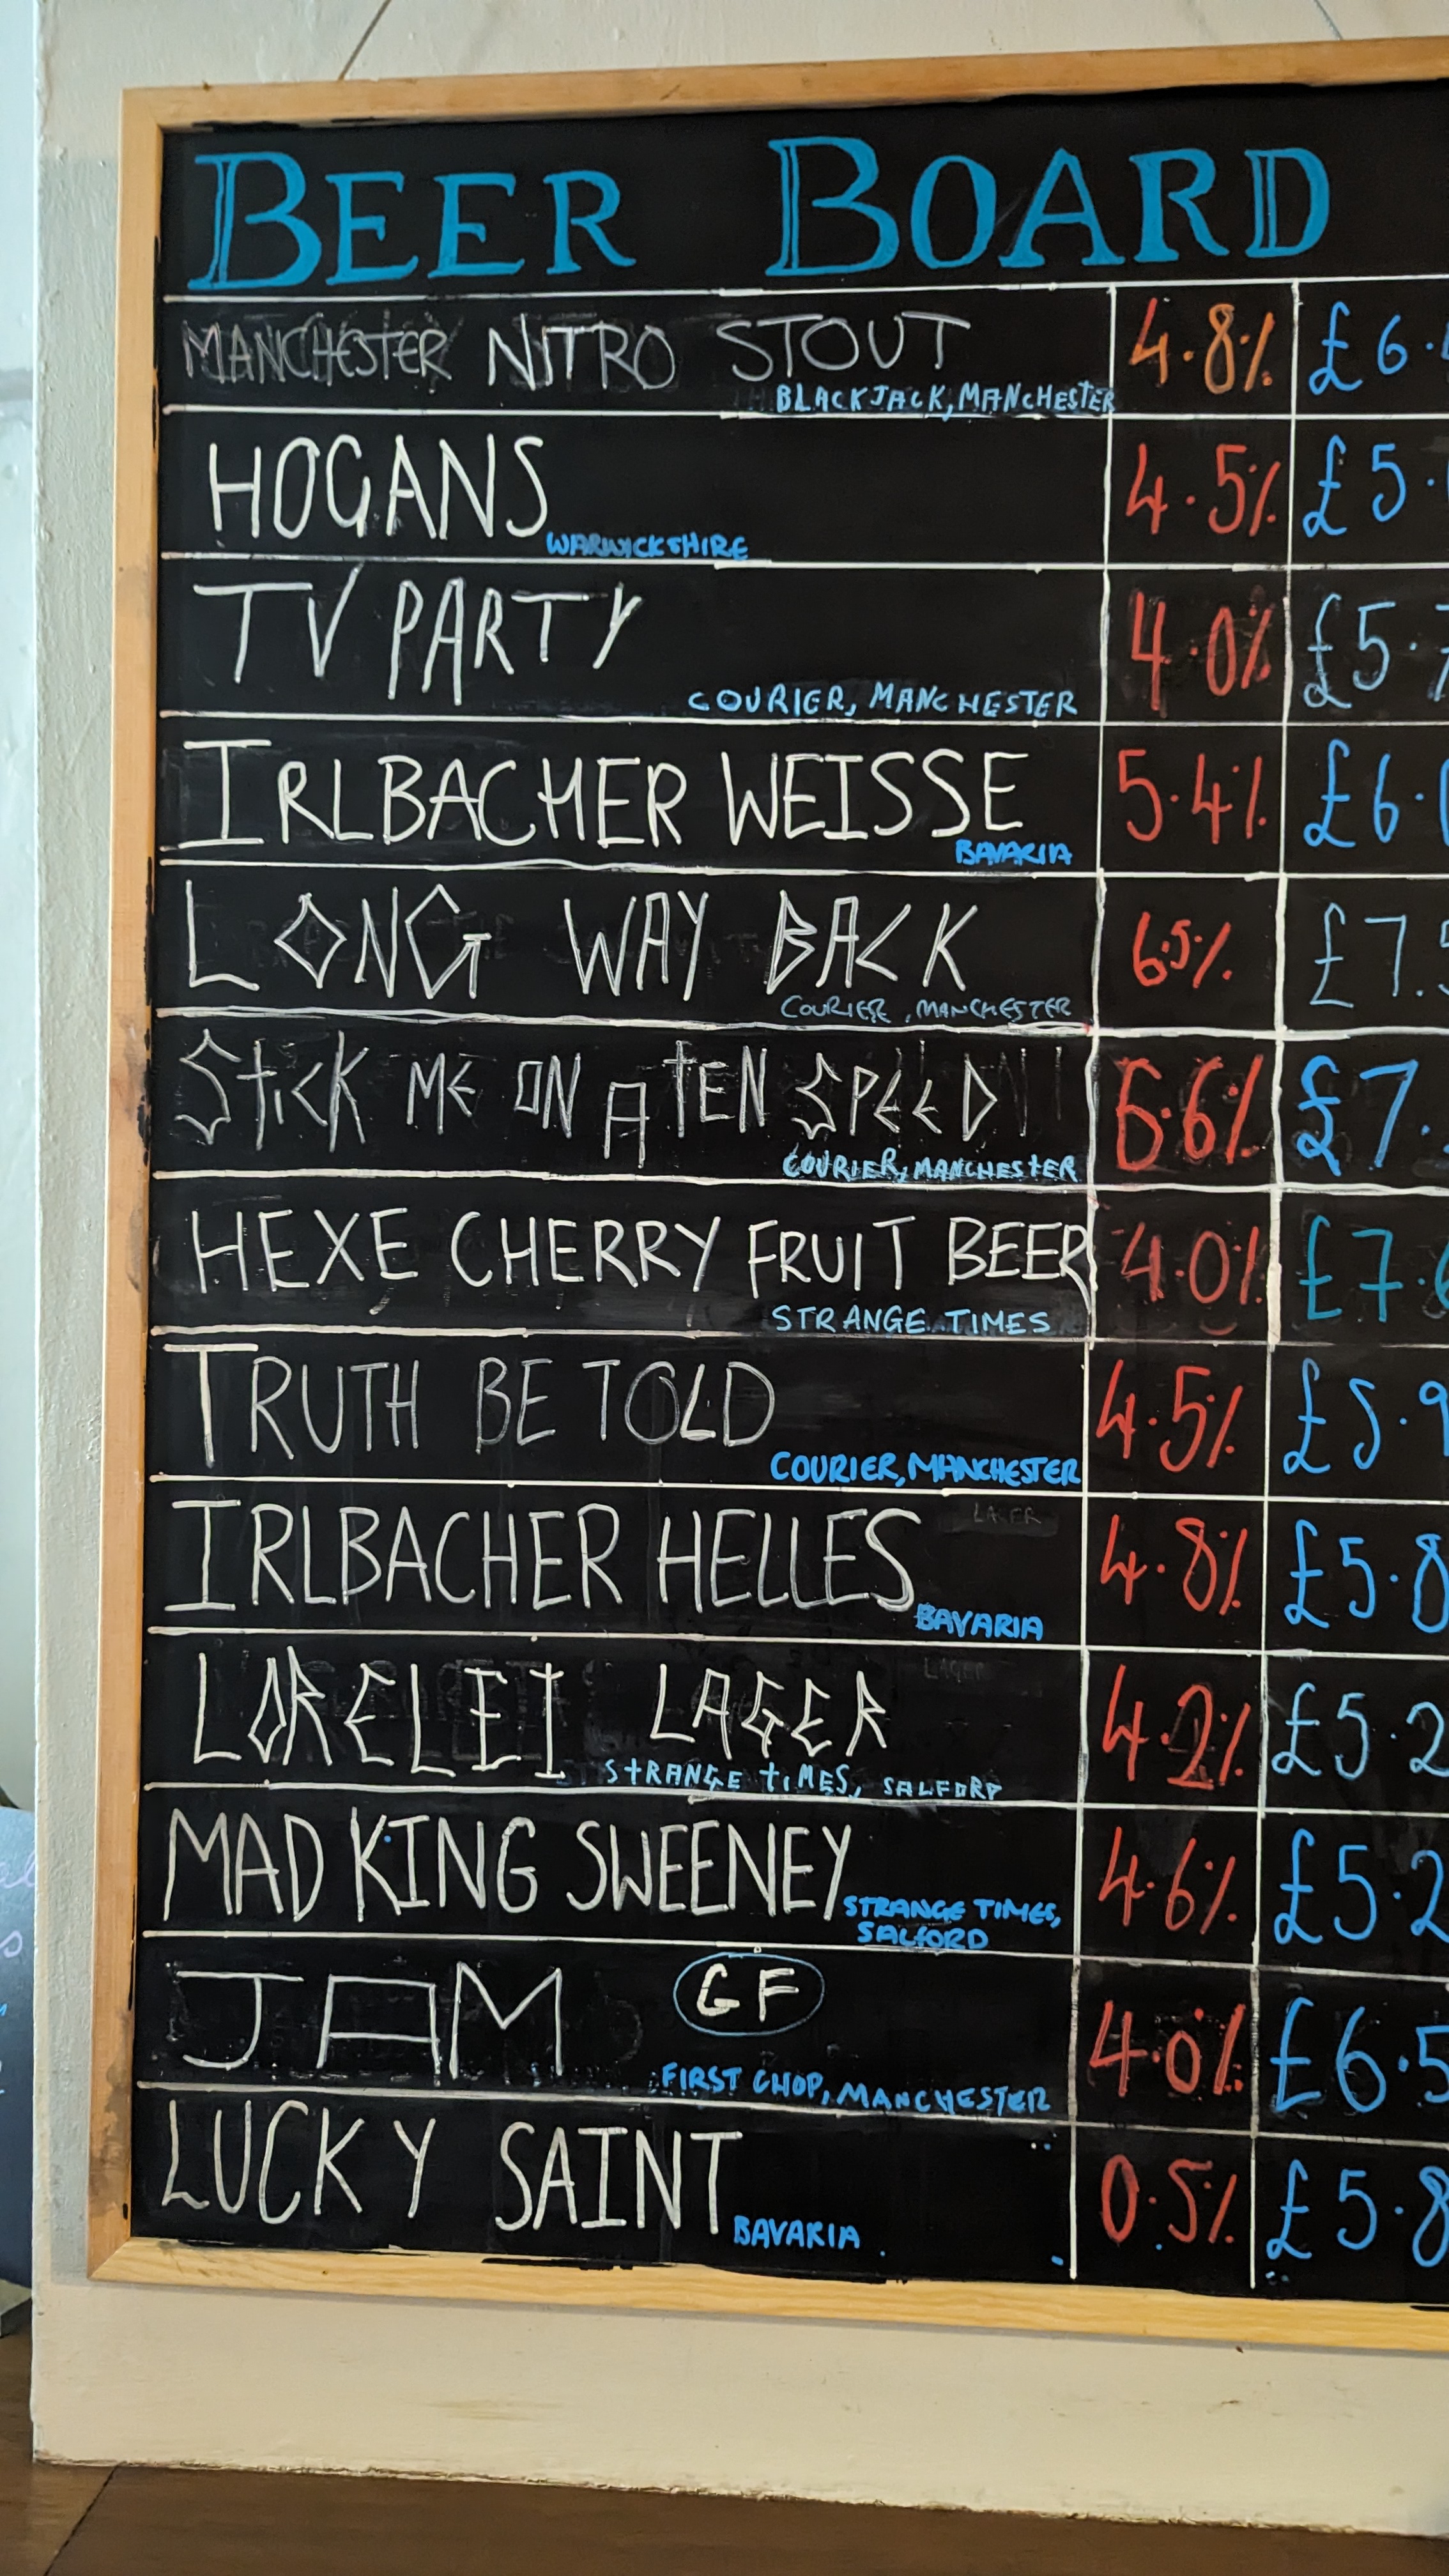 BEER BOARD
MANCHESTER NITRO STOUT 4.8% £6.
BLACKJACK, MANCHESTER
HOGANS 4.5% £5.
WARWICKSHIRE
TV PARTY 4.0% £5.7
COURIER, MANCHESTER
IRLBACHER WEISSE 5.4% £6.
BAVARIA
LONG WAY BACK 6.5% £7.5
COURIER, MANCHESTER
STICK ME ON A TEN SPEED 6.6% £7.
COURIER, MANCHESTER
HEXE CHERRY FRUIT BEER 4.0% £7.6
STRANGE TIMES
TRUTH BE TOLD 4.5% £5.9
COURIER, MANCHESTER
LAGER
IRLBACHER HELLES 4.8% £5.8
BAVARIA
LAGER
LORELEI LAGER 4.2% £5.2
STRANGE TIMES, SALFORD
MAD KING SWEENEY 4.6% £5.2
STRANGE TIMES,
SALFORD
JAM GF 4.0% £6.5
FIRST CHOP, MANCHESTER
LUCKY SAINT 0.5% £5.8
BAVARIA